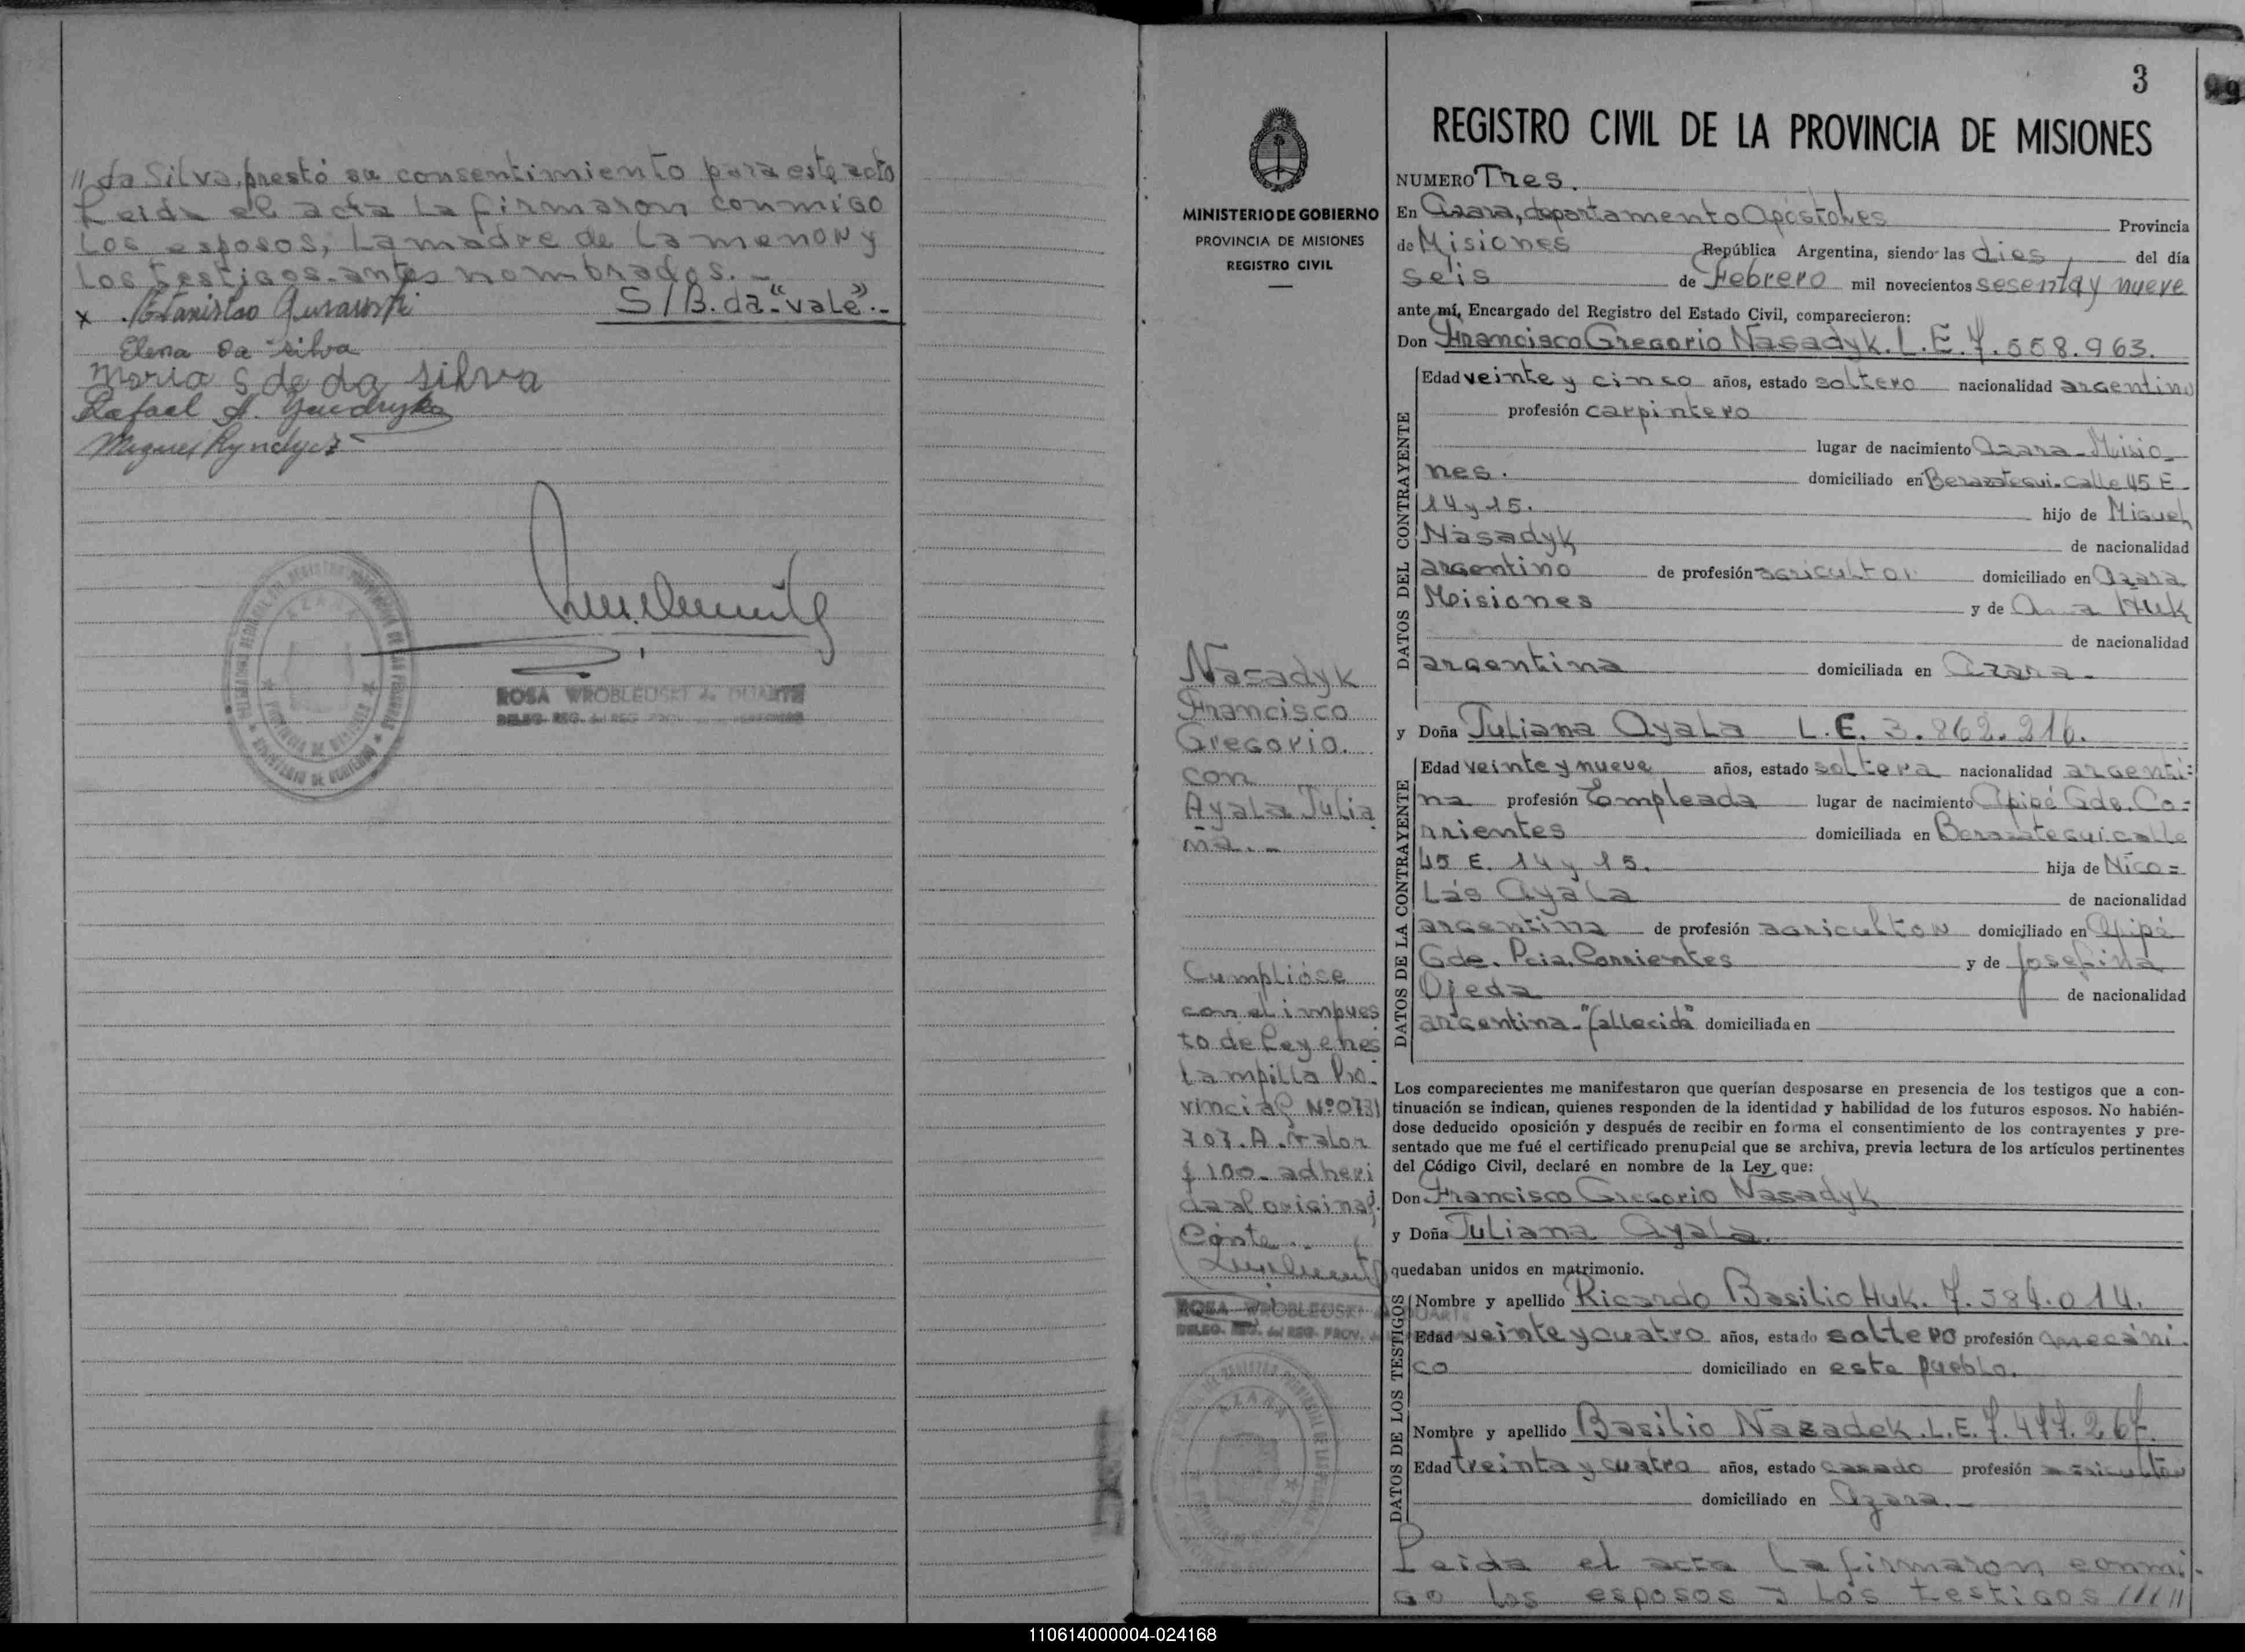 // da Silva, prestó su consentimiento para este acto
Leida el acta la firmaron conmigo
los esposos, la madre de la menor y
los testigos antes nombrados. -
S/B. da "vale".-
x Estanislao
Elena da silva
Maria S de da silva
Rafael A.
Miguel
ROSA WROBLEUSKI de DUARTE
DELEG. REG. del REG. PROV.
3
99
REGISTRO CIVIL DE LA PROVINCIA DE MISIONES
MINISTERIO DE GOBIERNO
PROVINCIA DE MISIONES
REGISTRO CIVIL
NUMERO Tres.
En Azara, departamento Apóstoles Provincia
de Misiones República Argentina, siendo las dies, del día
seis de Febrero mil novecientos sesenta y nueve
ante mí, Encargado del Registro del Estado Civil, comparecieron:
Don Francisco Gregorio Nasadyk. L.E. 7.558.963.
DATOS DEL CONTRAYENTE
Edad veinte y cinco años, estado soltero nacionalidad argentino
profesión carpintero
lugar de nacimiento Azara-Misio-
nes. domiciliado en Berazategui-calle 45 E-
14 y 15. hijo de Miguel
Nasadyk de nacionalidad
argentino de profesión agricultor domiciliado en Azara
Misiones y de Huk
de nacionalidad
argentina domiciliada en Azara.-
y Doña Juliana Ayala L.E. 3.862.216.
DATOS DE LA CONTRAYENTE
Edad veinte y nueve años, estado soltera nacionalidad argenti=
na profesión Empleada lugar de nacimiento Apipé Gde. Co=
rrientes domiciliada en Berazategui calle
45 E. 14 y 15. hija de Nico=
lás Ayala de nacionalidad
argentina de profesión agricultor domiciliado en Apipé
Gde. Pcia. Corrientes y de Josefina
Ojeda de nacionalidad
argentina-"fallecida" domiciliada en
Nasadyk
Francisco
Gregorio.
con
Ayala Julia
na.-
Cumplióse
con el impues
to de Ley en es
tampilla Pro-
vincial Nº 0731
707.A. Valor
$ 100- adheri
da al original.
Conste.
ROSA WROBLEUSKI de DUARTE
DELEG. REG. del REG. PROV.
AZARA
Los comparecientes me manifestaron que querían desposarse en presencia de los testigos que a con-
tinuación se indican, quienes responden de la identidad y habilidad de los futuros esposos. No habién-
dose deducido oposición y después de recibir en forma el consentimiento de los contrayentes y pre-
sentado que me fué el certificado prenupcial que se archiva, previa lectura de los artículos pertinentes
del Código Civil, declaré en nombre de la Ley que:
Don Francisco Gregorio Nasadyk
y Doña Juliana Ayala.
quedaban unidos en matrimonio.
DATOS DE LOS TESTIGOS
Nombre y apellido Ricardo Basilio Huk. 7.584.014.
Edad veinte y cuatro años, estado soltero profesión mecáni-
co domiciliado en este pueblo.
Nombre y apellido Basilio Nazadek. L.E. 7.477.267.
Edad treinta y cuatro años, estado casado profesión agricultor
domiciliado en Azara.-
Leida el acta la firmaron conmi-
go los esposos y los testigos /////
110614000004-024168